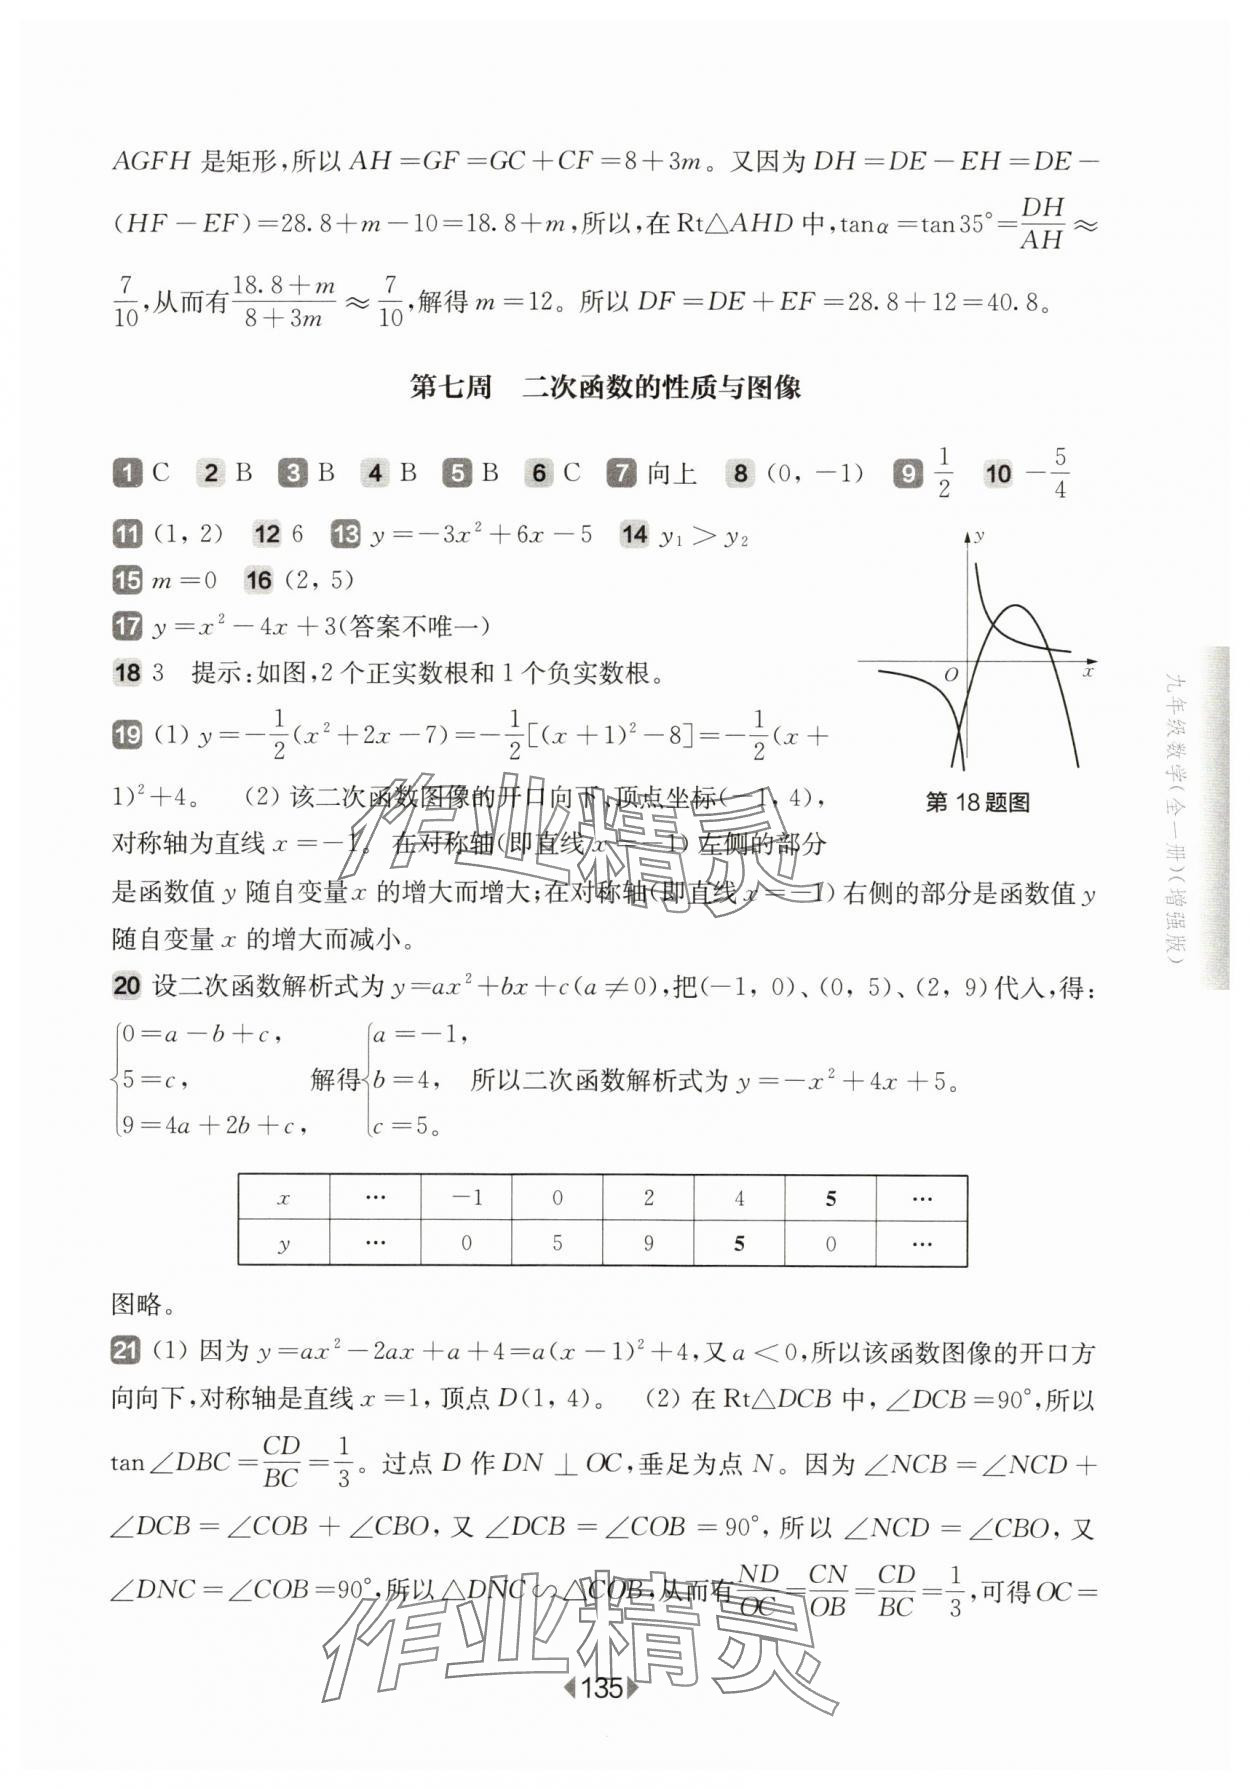 AGFH 是矩形,所以 AH=GF=GC+CF=8+3m。又因为 DH=DE-EH=DE-
(HF-EF)=28.8+m-10=18.8+m,所以,在Rt△AHD中,tanα=tan35°=DH/AH≈
7/10,从而有(18.8+m)/(8+3m)≈7/10,解得 m=12。所以 DF=DE+EF=28.8+12=40.8。
第七周 二次函数的性质与图像
1 C 2 B 3 B 4 B 5 B 6 C 7 向上 8 (0, -1) 9 1/2 10 -5/4
11 (1, 2) 12 6 13 y=-3x²+6x-5 14 y₁>y₂
15 m=0 16 (2, 5)
17 y=x²-4x+3(答案不唯一)
18 3 提示:如图,2个正实数根和1个负实数根。
y
O
x
第18题图
19 (1) y=-1/2(x²+2x-7)=-1/2[(x+1)²-8]=-1/2(x+
1)²+4。 (2) 该二次函数图像的开口向下、顶点坐标(-1, 4),
对称轴为直线 x=-1。 在对称轴(即直线 x=-1)左侧的部分
是函数值 y 随自变量 x 的增大而增大;在对称轴(即直线 x=-1)右侧的部分是函数值 y
随自变量 x 的增大而减小。
20 设二次函数解析式为 y=ax²+bx+c(a≠0),把(-1, 0)、(0, 5)、(2, 9)代入,得:
0=a-b+c, a=-1,
5=c, 解得 b=4, 所以二次函数解析式为 y=-x²+4x+5。
9=4a+2b+c, c=5。
x … -1 0 2 4 5 …
y … 0 5 9 5 0 …
图略。
21 (1) 因为 y=ax²-2ax+a+4=a(x-1)²+4,又 a<0,所以该函数图像的开口方
向向下,对称轴是直线 x=1,顶点 D(1, 4)。 (2) 在 Rt△DCB 中,∠DCB=90°,所以
tan∠DBC=CD/BC=1/3。过点 D 作 DN⊥OC,垂足为点 N。因为∠NCB=∠NCD+
∠DCB=∠COB+∠CBO,又∠DCB=∠COB=90°,所以∠NCD=∠CBO,又
∠DNC=∠COB=90°,所以△DNC∽△COB,从而有ND/OC=CN/OB=CD/BC=1/3,可得OC=
135
九年级数学(全一册)(增强版)
作业精灵
作业精灵